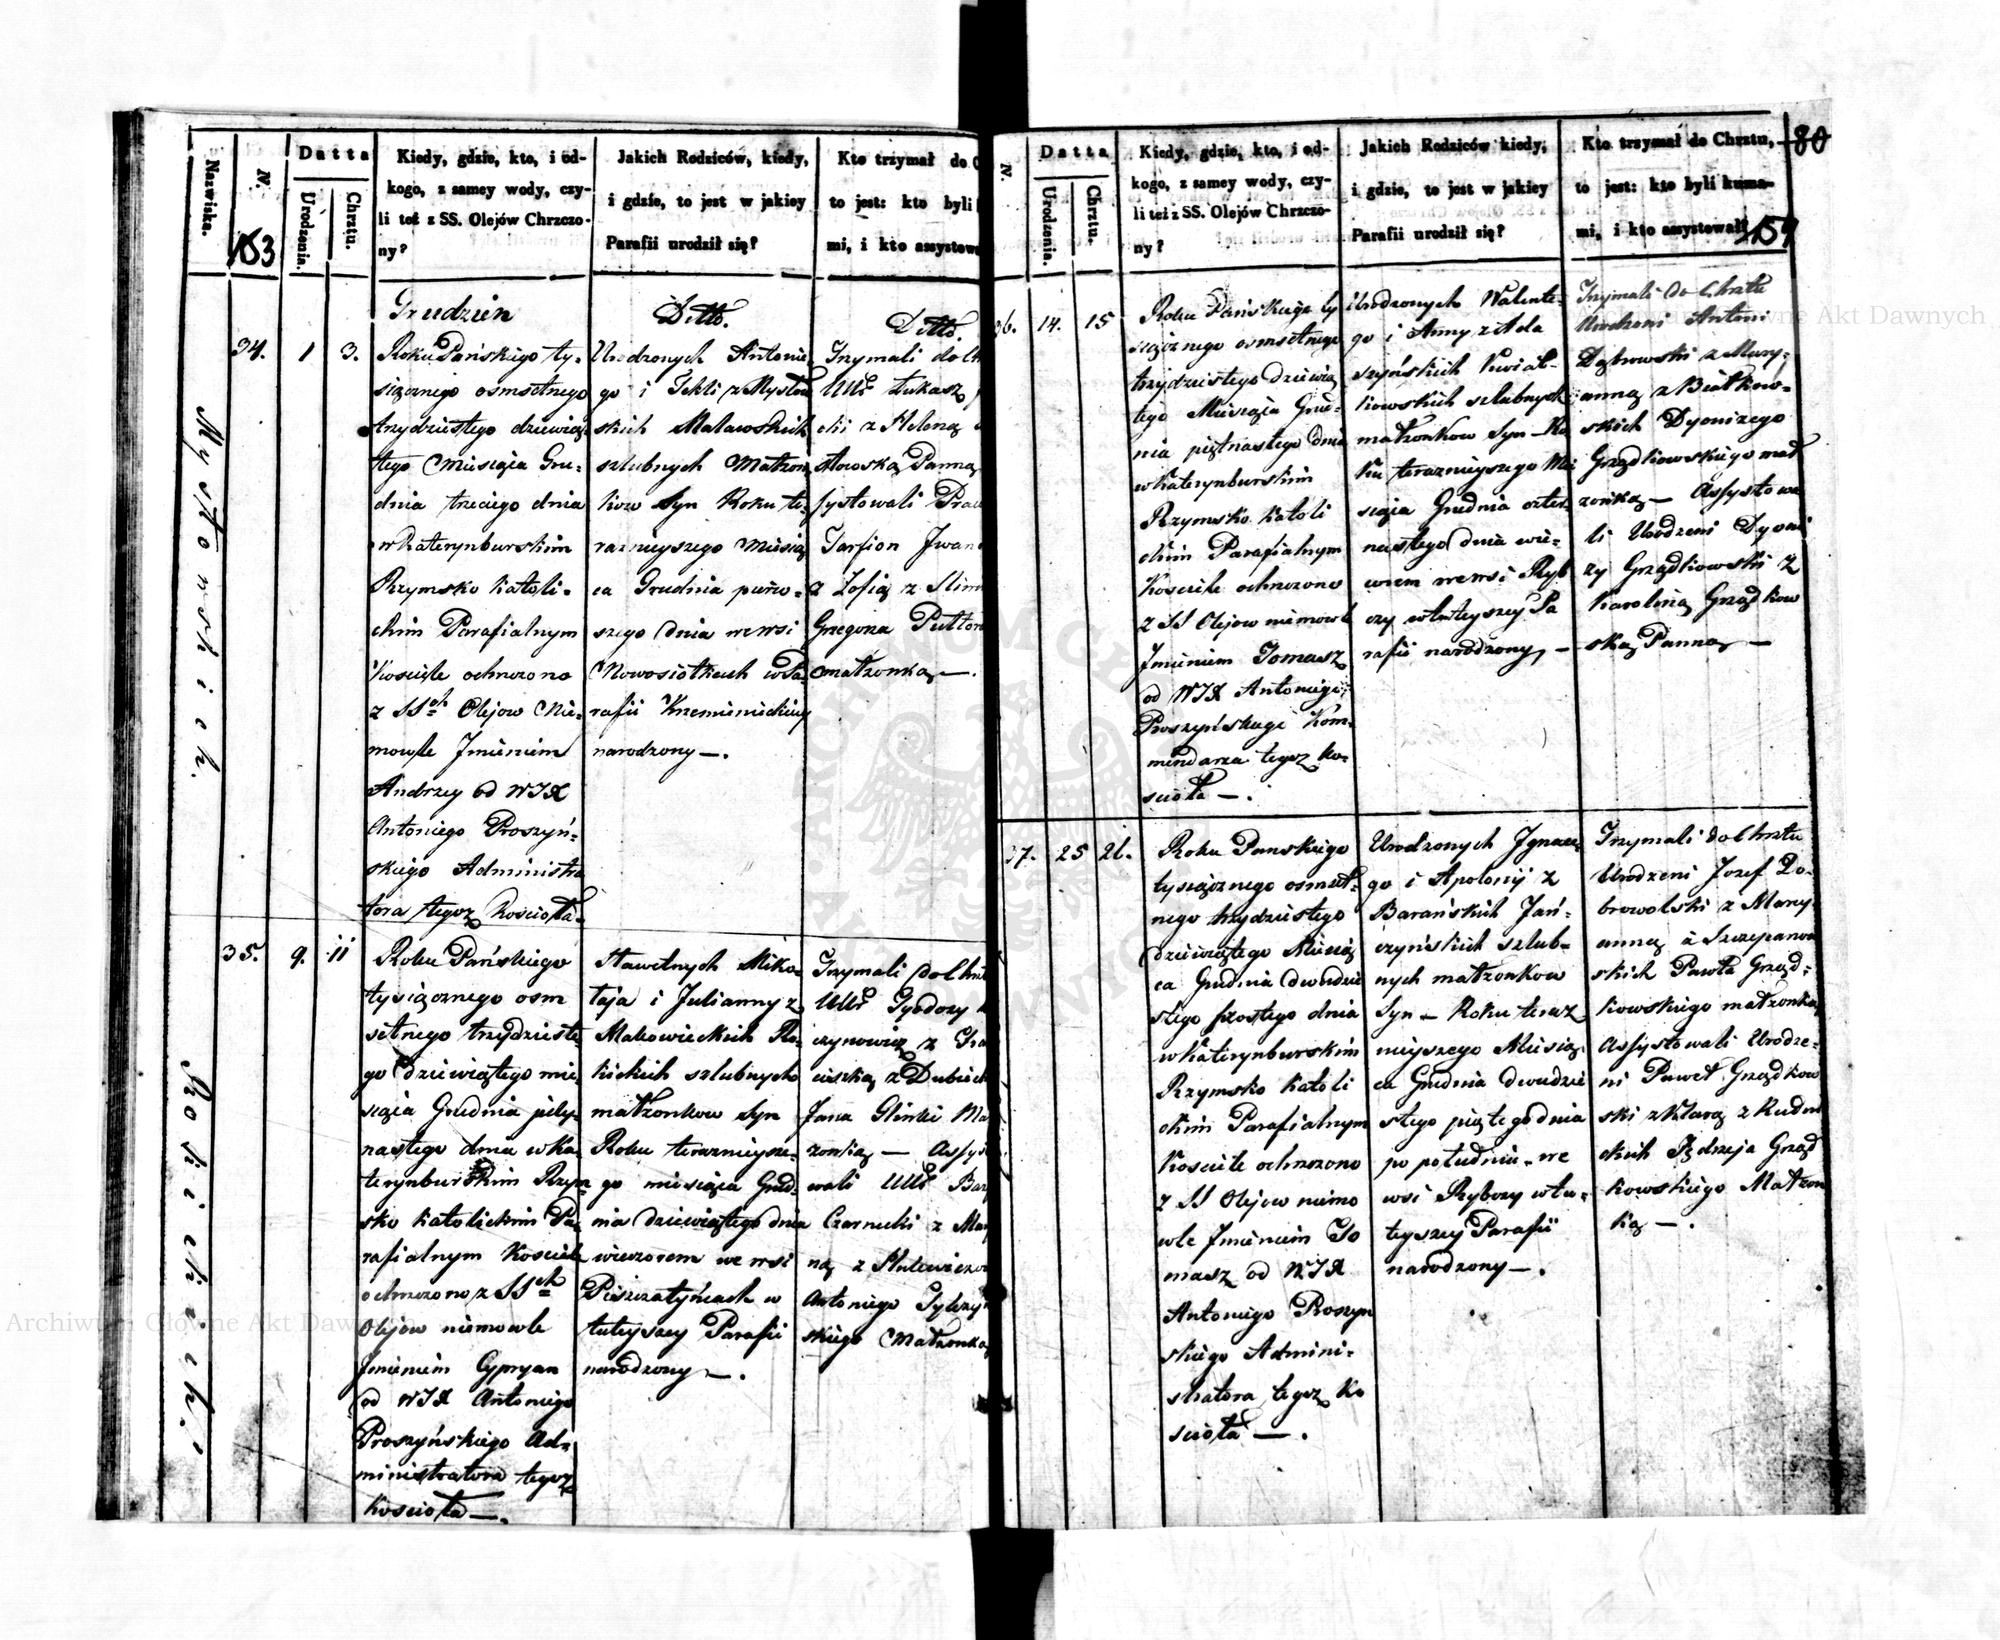 Nazwiska.
N.
153
Datta
Urodzenia.
Chrztu.
Kiedy, gdzie, kto, i od-
kogo, z samey wody, czy-
li też z SS. Olejów Chrzczo-
ny?
Jakich Rodziców, kiedy,
i gdzie, to jest w jakiey
Parafii urodził się?
Kto trzymał do C
to jest: kto byli
mi, i kto assystow
Mysłowskich.
34.
1
3.
Grudzień
Roku Pańskiego ty-
siącznego osmsetnego
trzydziestego dziewią
tego Miesiąca Gru-
dnia trzeciego dnia
w Katerynburskim
Rzymsko Katoli-
ckim Parafialnym
Kościele ochrzczono
z SSch Olejow Nie-
mowle Jmieniem
Andrzey od WJX
Antoniego Proszyń-
skiego Administra
tora tegoż Kościoła-
Ditto.
Urodzonych Antonie
go i Tekli z Mysłow
skich Malawskich
szlubnych Małżon
kow Syn Roku te-
raznieyszego Miesią
ca Grudnia pierw-
szego dnia we wsi
Nowosiołkach w Pa-
rafii Krzemienickiey
narodzony —.
Ditto.
Trzymali do Ch
UUr Łukasz
cki z Heleną
słowską Panną
systowali Praw
Tarfion Jwan
z Zofią z
Grzegorza
małżonką —.
Rokickich.
35.
9.
11
Roku Pańskiego
tysiącznego osm
setnego trzydzieste
go dziewiątego mie
siąca Grudnia jedy-
nastego dnia w Ka
terynburskim Rzym
sko katolickim Pa
rafialnym Kościele
ochrzczono z SSch
Olejow niemowle
Jmieniem Cypryan
od WJX Antoniego
Proszyńskiego Ad-
ministratora tegoż
Kościoła —.
Sławetnych Miko-
łaja i Julianny z
Makowieckich Ro-
kickich szlubnych
małżonkow Syn
Roku teraznieysze-
go miesiąca Grud-
nia dziewiątego dnia
wieczorem we wsi
Pieszczatyńcach w
tuteyszey Parafii
narodzony —.
Trzymali do Chrz
UUr Tyodory
czynowicz z Fra
ciszką z Dubieck
Jana Glinki Ma
zonką — Assys
wali UUr Baz
Czarnecki z Ma
ną z
Antoniego
skiego Małżonką
N.
Datta
Urodzenia.
Chrztu.
Kiedy, gdzie, kto, i od-
kogo, z samey wody, czy-
li też z SS. Olejów Chrzczo-
ny?
Jakich Rodziców kiedy,
i gdzie, to jest w jakiey
Parafii urodził się?
Kto trzymał do Chrztu,
to jest: kto byli kuma-
mi, i kto assystował?
80
159
36.
14.
15
Roku Pańskiego ty
siącznego osmsetnego
trzydziestego dziewią
tego Miesiąca Gru-
nia piętnastego dnia
w Katerynburskim
Rzymsko Katoli
ckim Parafialnym
Kościele ochrzczono
z SS Olejow niemowle
Jmieniem Tomasz
od WJX Antoniego
Proszyńskiego Kom-
mendarza tegoż Ko-
scioła —.
Urodzonych Walente-
go i Anny z Ada
szyńskich Kwiat-
kowskich szlubnych
małżonkow Syn — Ro
ku teraznieyszego Mie
siąca Grudnia czter
nastego dnia wie-
czorem we wsi Ryb
czy w tuteyszey Pa
rafii narodzony, —
Trzymali do Chrztu
Urodzeni Antoni
Dąbrowski z Mary-
anną z Białkow-
skich Dyonizego
Grządkowskiego mał
żonką — Assystowa
li Urodzeni Dyoni
zy Grządkowski z
Karoliną Grządkow
ską Panną —
37.
25
26.
Roku Panskiego
tysiącznego osmset-
nego trzydziestego
dziewiątego Miesią
ca Grudnia dwudzie
stego szostego dnia
w Katerynburskim
Rzymsko Katoli
ckim Parafialnym
Kościele ochrzczono
z SS Olejow niemo
wle Jmieniem To
masz od WJX
Antoniego Proszyn
skiego Admini-
stratora tegoż Ko
scioła —.
Urodzonych Jgnace-
go i Apolonij z
Barańskich Jań-
czyńskich szlub-
nych małżonkow
Syn — Roku teraz
nieyszego Miesią
ca Grudnia dwudzie
stego piątego dnia
po południu we
wsi Rybczy w tu-
teyszey Parafii
narodzony —.
Trzymali do Chrztu
Urodzeni Jozef Do-
browolski z Mary-
anną z Szczepanow
skich Pawła Grząd-
kowskiego małżonką
Assystowali Urodze-
ni Paweł Grządkow
ski z Klarą z Rudni
ckich Jędrzeja Grząd
kowskiego Małżon
ką —.
Archiwum Główne Akt Dawnych
Archiwum Główne Akt Dawnych